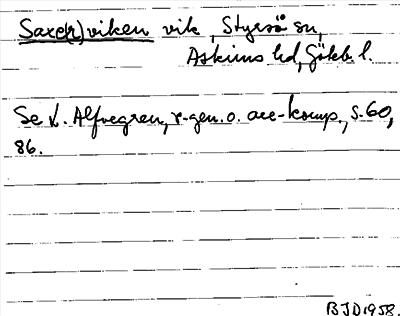 Saxe(r)viken vik, Styrsö sn,
Askims hd, Götebl.
Se L. Alfvegren, r-gen. o. ace-komp., s. 60,
86.
BJD1958.